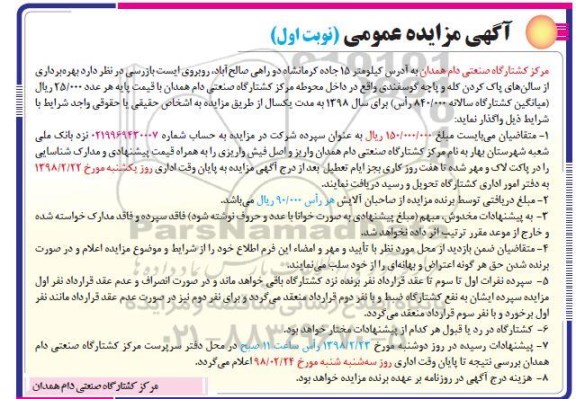 آگهی مزایده عمومی (نوبت اول)
مرکز کشتارگاه صنعتی دام همدان به آدرس کیلومتر ۱۵ جاده کرمانشاه دو راهی صالح آباد، روبروی ایست بازرسی در نظر دارد بهره‌برداری
از سالن‌های پاک کردن کله و پاچه گوسفندی واقع در داخل محوطه مرکز کشتارگاه صنعتی دام همدان با قیمت پایه هر عدد ۲۵/۰۰۰ ریال
(میانگین کشتارگاه سالانه ۸۴۰/۰۰۰ رأس) برای سال ۱۳۹۸ به مدت یکسال از طریق مزایده به اشخاص حقیقی یا حقوقی واجد شرایط با
شرایط ذیل واگذار نماید:
۱- متقاضیان می‌بایست مبلغ ۱۵۰/۰۰۰/۰۰۰ ریال به عنوان سپرده شرکت در مزایده به حساب شماره ۰۲۱۹۹۶۹۴۳۰۰۰۷ نزد بانک ملی
شعبه شهرستان بهار به نام مرکز کشتارگاه صنعتی دام همدان واریز و اصل فیش واریزی را به همراه قیمت پیشنهادی و مدارک شناسایی
را در پاکت لاک و مهر شده تا هفت روز کاری بجز ایام تعطیل بعد از درج آگهی مزایده به پایان وقت اداری روز یکشنبه مورخ ۱۳۹۸/۲/۲۲
به دفتر امور اداری کشتارگاه تحویل و رسید دریافت نمایند.
۲- مبلغ دریافتی توسط برنده مزایده از صاحبان آلایش هر رأس ۹۰/۰۰۰ ریال می‌باشد.
۳- به پیشنهادات مخدوش، مبهم (مبلغ پیشنهادی به صورت خوانا با عدد و حروف نوشته شود) فاقد سپرده و فاقد مدارک خواسته شده
و خارج از موعد مقرر ترتیب اثر داده نخواهد شد.
۴- متقاضیان ضمن بازدید از محل مورد نظر با تأیید و مهر و امضاء این فرم اطلاع خود را از شرایط و موضوع مزایده اعلام و در صورت
برنده شدن حق هر گونه اعتراض و بهانه‌ای را از خود سلب می‌نمایند.
۵- سپرده نفرات اول تا سوم تا عقد قرارداد نفر برنده نزد کشتارگاه باقی خواهد ماند و در صورت انصراف و عدم عقد قرارداد نفر اول
مزایده سپرده ایشان به نفع کشتارگاه ضبط و با نفر دوم قرارداد منعقد می‌گردد و برای نفر دوم نیز در صورت عدم عقد قرارداد مانند نفر
اول برخورد و با نفر سوم قرارداد منعقد می‌گردد.
۶- کشتارگاه در رد یا قبول هر کدام از پیشنهادات مختار خواهد بود.
۷- پیشنهادات رسیده در روز دوشنبه مورخ ۱۳۹۸/۲/۲۳ رأس ساعت ۱۱ صبح در محل دفتر سرپرست مرکز کشتارگاه صنعتی دام
همدان بررسی نتیجه تا پایان وقت اداری روز سه‌شنبه شنبه مورخ ۹۸/۰۲/۲۴ اعلام می‌گردد.
۸- هزینه درج آگهی در روزنامه بر عهده برنده مزایده خواهد بود.
مرکز کشتارگاه صنعتی دام همدان